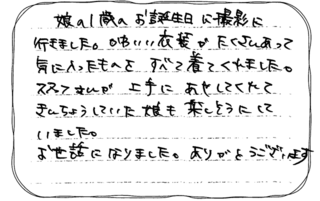 娘の1歳のお誕生日に撮影に
行きました。かわいい衣装がたくさんあって
気に入ったものをすべて着てくれました。
スタッフさんが上手にあやしてくれて
きんちょうしていた娘も楽しそうにして
いました。
お世話になりました。ありがとうございます